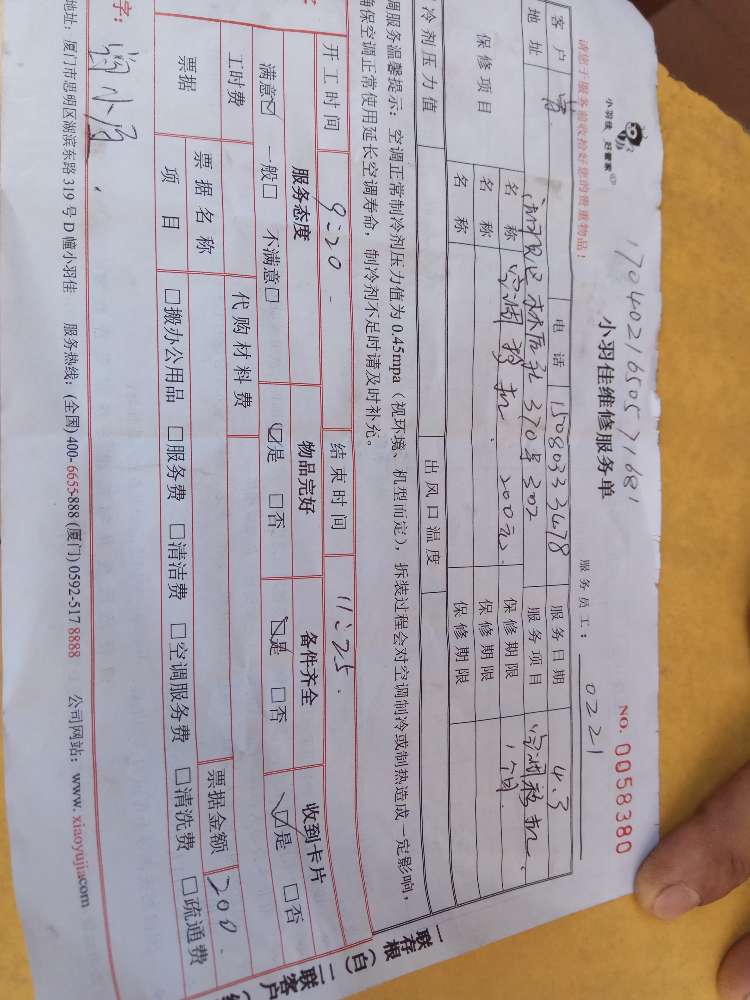 小羽佳 好管家
1704021650571681
NO. 0058380
小羽佳维修服务单
服务员工： 0221
请您于服务前收拾好您的贵重物品！
客 户 电 话 15080333478 服务日期 4.3
地 址 370号302 服务项目 空调移机
保修项目 名 称 空调移机 200元 保修期限 1个月
名 称 保修期限
名 称 保修期限
冷剂压力值 出风口温度
调服务温馨提示：空调正常制冷剂压力值为 0.45mpa（视环境、机型而定），拆装过程会对空调制冷或制热造成一定影响，
确保空调正常使用延长空调寿命，制冷剂不足时请及时补充。
开工时间 9:20 结束时间 11:25
服务态度 物品完好 备件齐全 收到卡片
满意☑ 一般□ 不满意□ ☑是 □否 ☑是 □否 ☑是 □否
工时费 代购材料费
票据 票据名称 票据金额 200
项 目 □搬办公用品 □服务费 □清洁费 □空调服务费 □清洗费 □疏通费
字：
地址：厦门市思明区湖滨东路 319 号 D 幢小羽佳 服务热线：(全国) 400-6655-888 (厦门) 0592-517 8888 公司网站：www.xiaoyujiacom
一联存根（白）二联客户